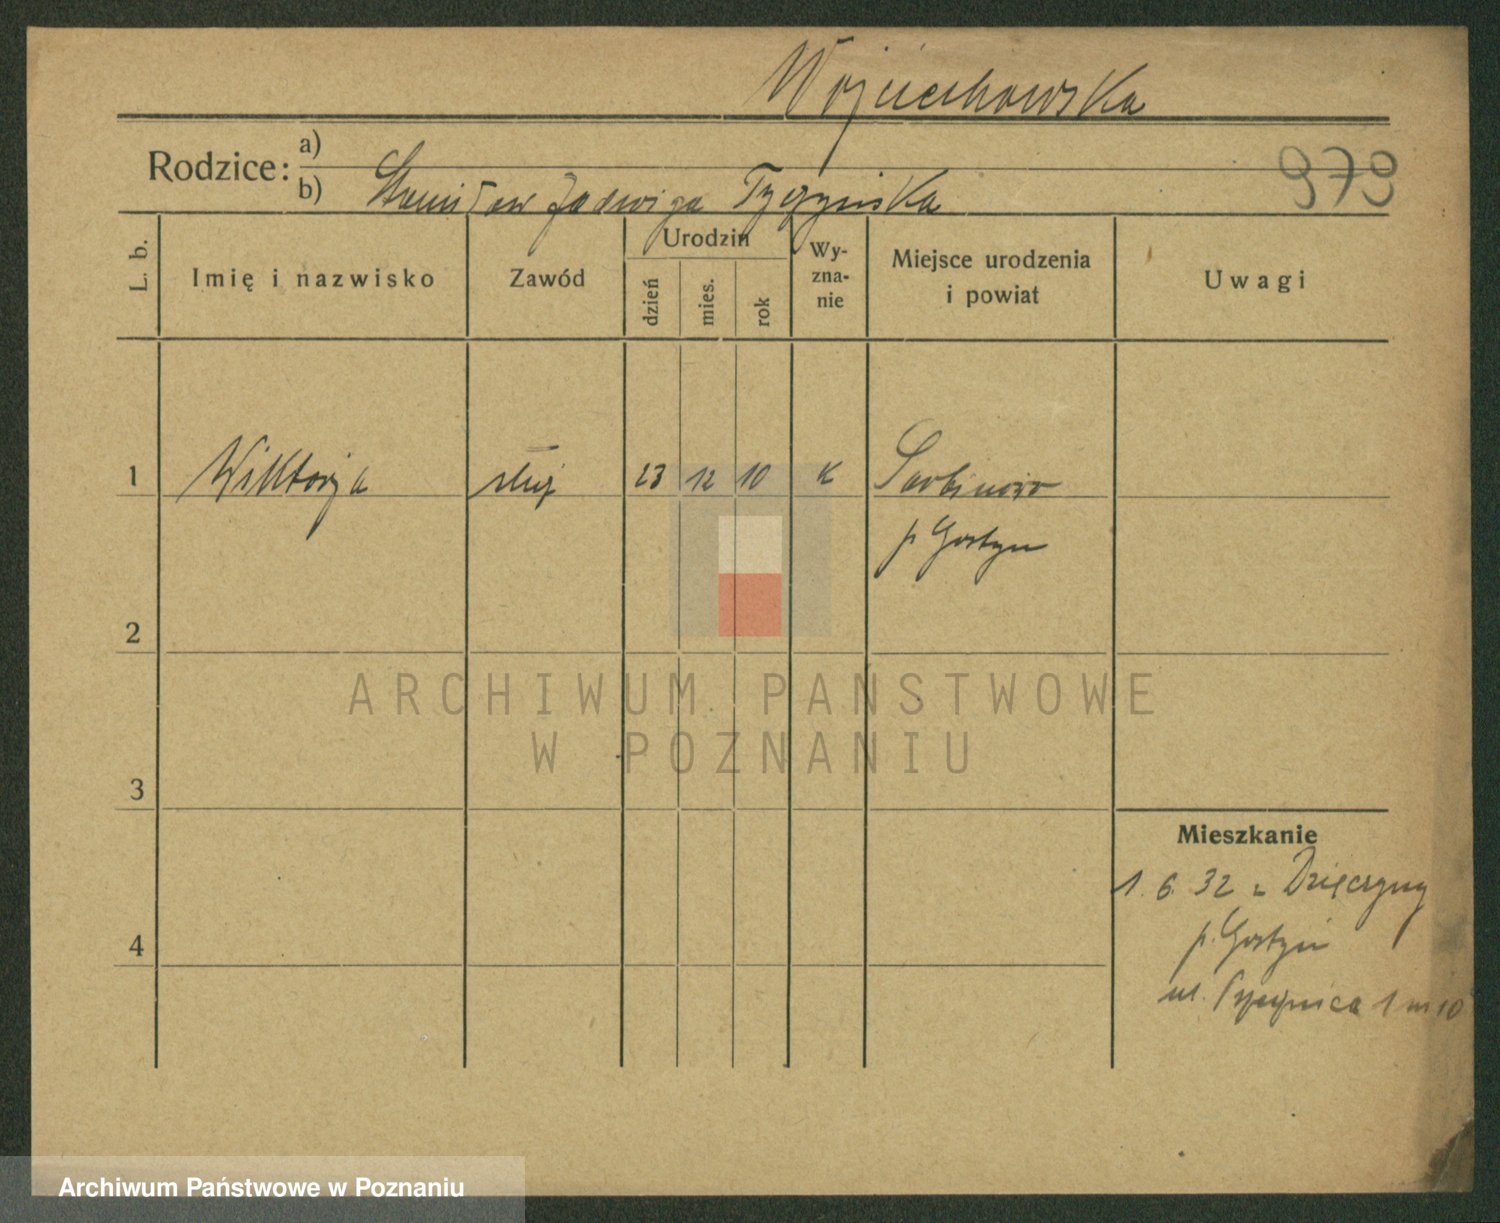 Wojciechowska
Rodzice:
a)
b) Stanisław Jadwiga
979
L. b.
Imię i nazwisko
Zawód
Urodzin
dzień
mies.
rok
Wy-
zna-
nie
Miejsce urodzenia
i powiat
Uwagi
1 Wiktorja służ 23 12 10 K Sarbinowo
p Gostyń
2
3
4
Mieszkanie
1. 6. 32 z Dzięczyny
p. Gostyń
ul. 1 m 10
ARCHIWUM PAŃSTWOWE
W POZNANIU
Archiwum Państwowe w Poznaniu